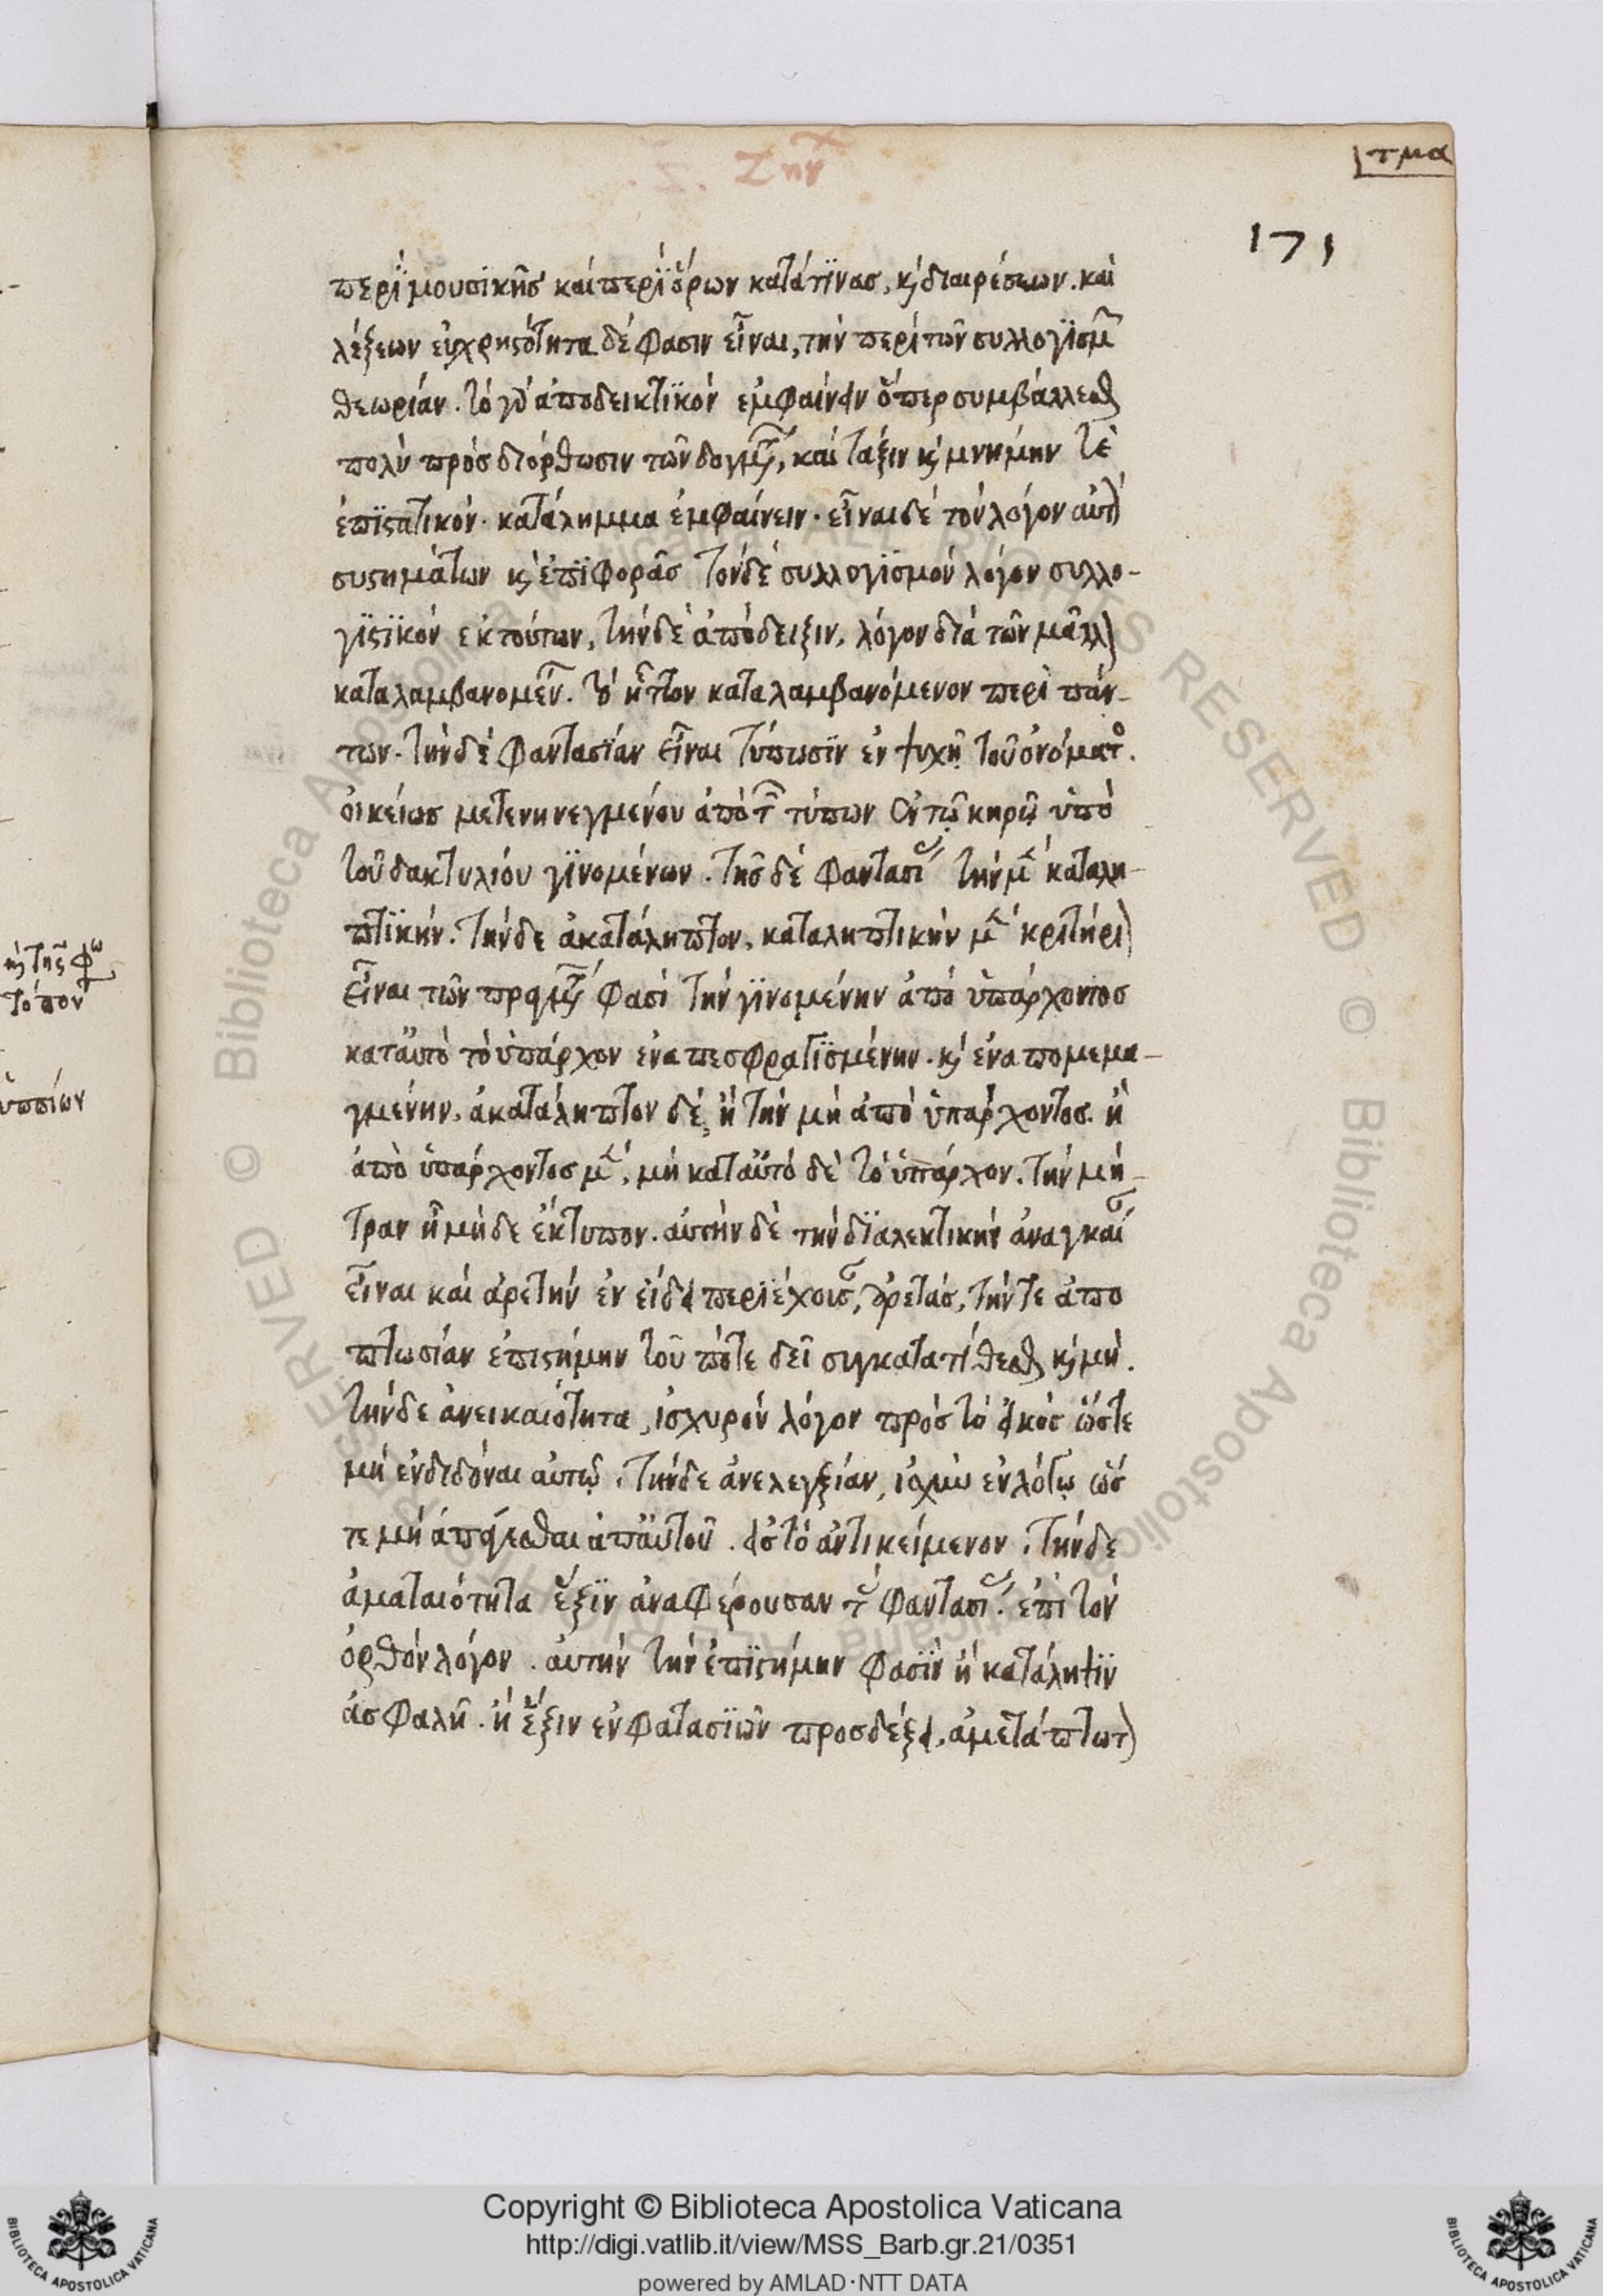 Ζην
τμα
171
περὶ μουσϊκῆς καὶ περὶ ὅρων κατά τϊνας, κ̀ διαιρέσεων. καὶ
λέξεων εὐχρηστότητα δέ φασιν εἶναι, τὴν περὶ τῶν συλλογϊσμ
θεωρίαν. τὸ γὰ ἀποδεικτϊκὸν ἐμφαίνειν ὅπερ συμβάλλεσθ
πολὺ πρὸς διόρθωσιν τῶν δογμτ, καὶ τάξιν κ̀ μνήμην τὲ
ἐπϊστατικὸν. κατάλημμα ἐμφαίνειν. εἶναι δὲ τὸν λόγον αὐτ
συστημάτων κ̀ ἐπϊφορᾶς τὸν δὲ συλλογϊσμὸν λόγον συλλο-
γϊστϊκὸν ἐκ τούτων, τὴν δὲ ἀπόδειξιν, λόγον διὰ τῶν μᾶλλ
καταλαμβανομέν. τὸ ἧττον καταλαμβανόμενον περὶ πάν-
των. τὴν δὲ φαντασϊάν εἶναι τύπωσϊν ἐν ψυχῇ τοῦ ὀνόματο.
οἰκείως μετενηνεγμένου ἀπὸ τ τύπων ἐν τῷ κηρῷ ὑπὸ
τοῦ δακτυλίου γϊνομένων. τῆς δὲ φαντασί τὴν μ καταλη-
πτϊκήν. τὴν δε ἀκατάληπτον, καταληπτικὴν μ κριτήρι
εἶναι τῶν πραγμτ φασὶ τὴν γϊνομένην ἀπὸ ὑπάρχοντος
κατ αὐτὸ τὸ ὑπάρχον ἐναπεσφραγϊσμένην. κ̀ ἐναπομεμα-
γμένην, ἀκατάληπτον δέ, ἢ τὴν μὴ ἀπὸ ὑπάρχοντος. ἢ
ἀπὸ ὑπάρχοντος μ, μὴ κατ αὐτό δὲ τὸ ὑπάρχον. τὴν μή-
τραν ἢ μὴ δε ἔκτυπον. αὐτὴν δὲ τὴν δϊαλεκτικὴν ἀναγκαί
εἶναι καὶ ἀρετὴν ἐν εἴδει περϊέχους, ἀρετάς, τήν τε ἀπο
πτωσίαν ἐπιστήμην τοῦ πότε δεῖ συγκατατίθεσθ κ̀ μή.
τὴν δε ἀνεικαιότητα, ἰσχυρὸν λόγον πρὸς τὸ εἰκὸς ὥστε
μὴ ἐνδιδόναι αὐτῷ. τὴν δε ἀνελεγξίαν, ἰσχὺν ἐν λόγῳ ὥσ
τε μὴ ἀπάγεσθαι ἀπ αὐτοῦ. εἰς τὸ ἀντικείμενον. τὴν δε
ἀματαιότητα ἕξϊν ἀναφέρουσαν τ φαντασί. ἐπὶ τὸν
ὀρθὸν λόγον. αὐτὴν τὴν ἐπϊστήμην φασϊν ἢ κατάληψϊν
ἀσφαλῆ. ἢ ἕξιν ἐν φατασϊῶν προσδέξει, ἀμετάπτωτ
κ̀ τῆς φω
τόπον
ὑππίων
Copyright © Biblioteca Apostolica Vaticana
http://digi.vatlib.it/view/MSS_Barb.gr.21/0351
powered by AMLAD·NTT DATA
BIBLIOTECA APOSTOLICA VATICANA
BIBLIOTECA APOSTOLICA VATICANA